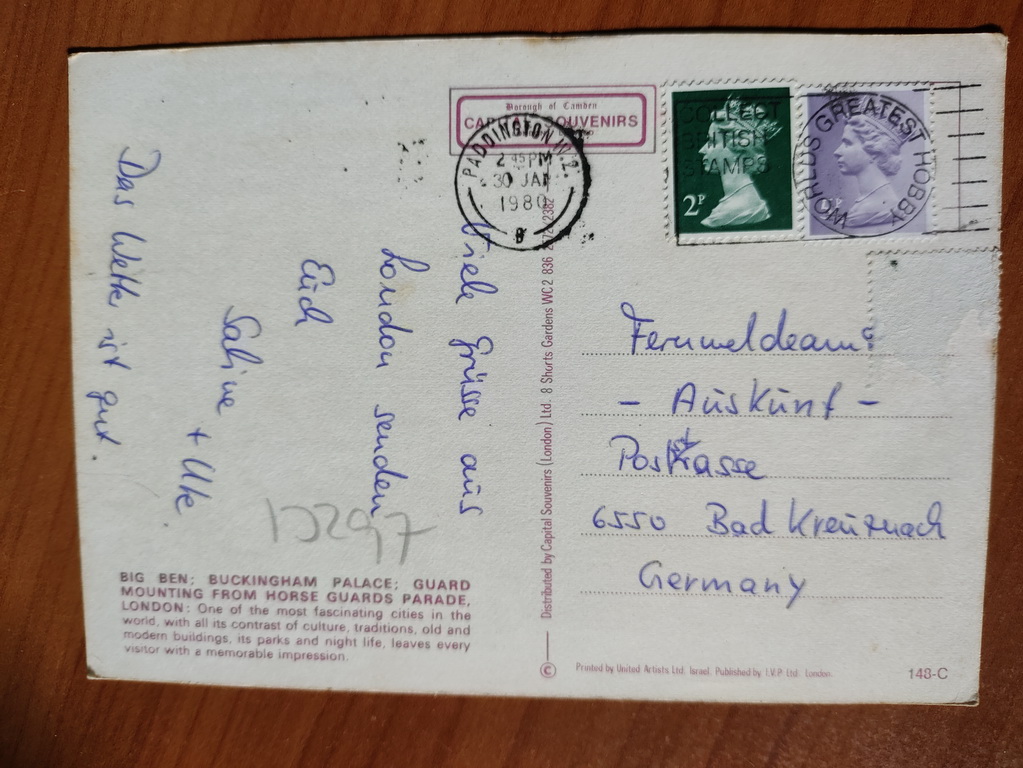 Borough of Camden
CAPITAL SOUVENIRS
PADDINGTON W.2.
2 45 PM
30 JAN
1980
COLLECT
BRITISH
STAMPS
WORLDS GREATEST HOBBY
2P
Viele Grüsse aus
London senden
Euch
Sabine
+ Ute.
Das Wetter ist gut.
Fernmeldeamt
- Auskunft -
Poststrasse
6550 Bad Kreuznach
Germany
BIG BEN; BUCKINGHAM PALACE; GUARD
MOUNTING FROM HORSE GUARDS PARADE,
LONDON: One of the most fascinating cities in the
world, with all its contrast of culture, traditions, old and
modern buildings, its parks and night life, leaves every
visitor with a memorable impression.
Distributed by Capital Souvenirs (London) Ltd. 8 Shorts Gardens WC2 836
©
Printed by United Artists Ltd. Israel. Published by I.V.P. Ltd. London.
148-C